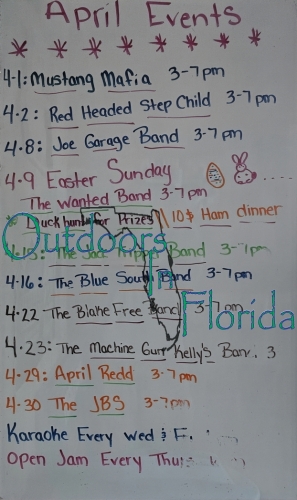 April Events
* * * * * * * *
4-1: Mustang Mafia 3-7pm
4-2: Red Headed Step Child 3-7pm
4-8: Joe Garage Band 3-7pm
4-9 Easter Sunday
The Wanted Band 3-7pm
* Duck hunt for Prizes \ 10$ Ham dinner
Outdoors
The Band 3-7pm
4-16: The Blue South Band 3-7pm
Florida
4-22 The Blake Free Band 3-7pm
4-23: The Machine Gun Kelly's Ban. 3
4-29: April Redd 3-7pm
4-30 The JBS 3-?pm
Karaoke Every wed & F.
Open Jam Every Thur